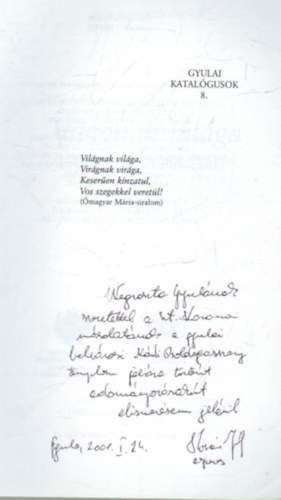 GYULAI
KATALÓGUSOK
8.
Világnak világa,
Virágnak virága,
Keserűen kínzatul,
Vos szegekkel veretül!
(Ómagyar Mária-siralom)
Gyulának
szeretettel a Szt. Korona
másolatának a gyulai
belvárosi Nagyboldogasszony
templom javára történt
adományozásáért
elismerésem jeléül
Gyula, 2001. I. 24.